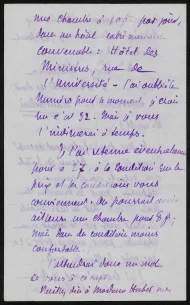 une chambre à 10f. par jour,
dans un hôtel très
convenable : Hôtel des
Ministres, rue de
l'Université – J'ai oublié le
numéro pour le moment, je crois
que c'est 32. Mais je vous
l'indiquerai à temps.
J'ai retenu
pour le 27, à la condition que le
prix et les conditions vous
conviennent. On pourrait avoir
ailleurs une chambre pour 8f,
mais dans des conditions moins
confortables.
J'attendrai donc un mot
de vous à ce sujet.
Veuillez dire à Madame